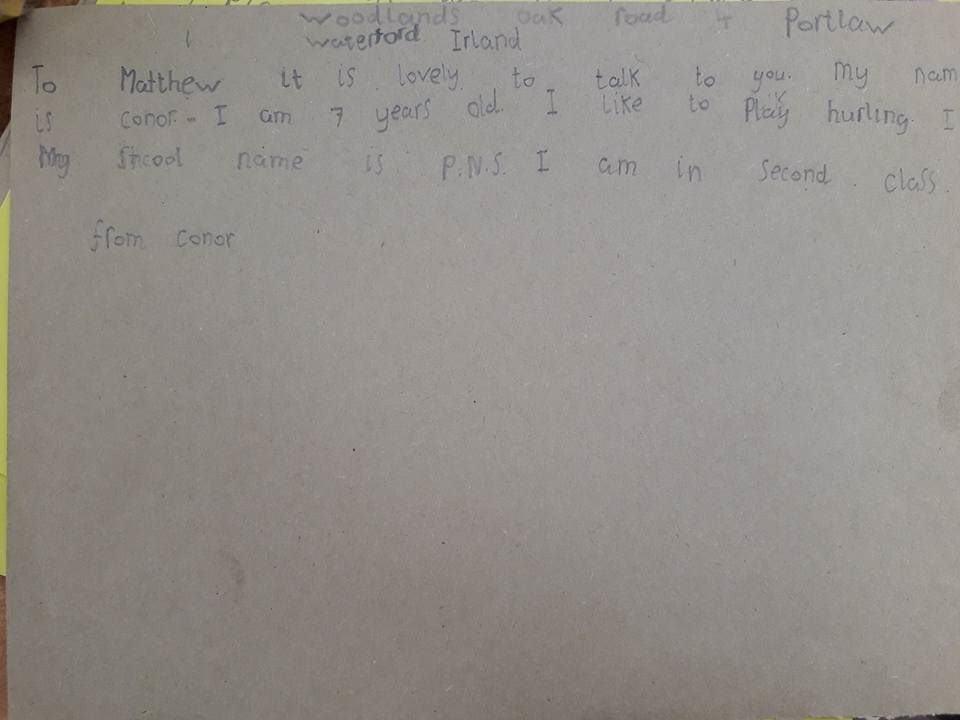 woodlands oak road 4 Portlaw
waterford Irland
To Matthew it is lovely to talk to you. My nam
is conor. I am 7 years old. I like to Play hurling. I
My Shcool name is P.N.S. I am in second class.
from conor